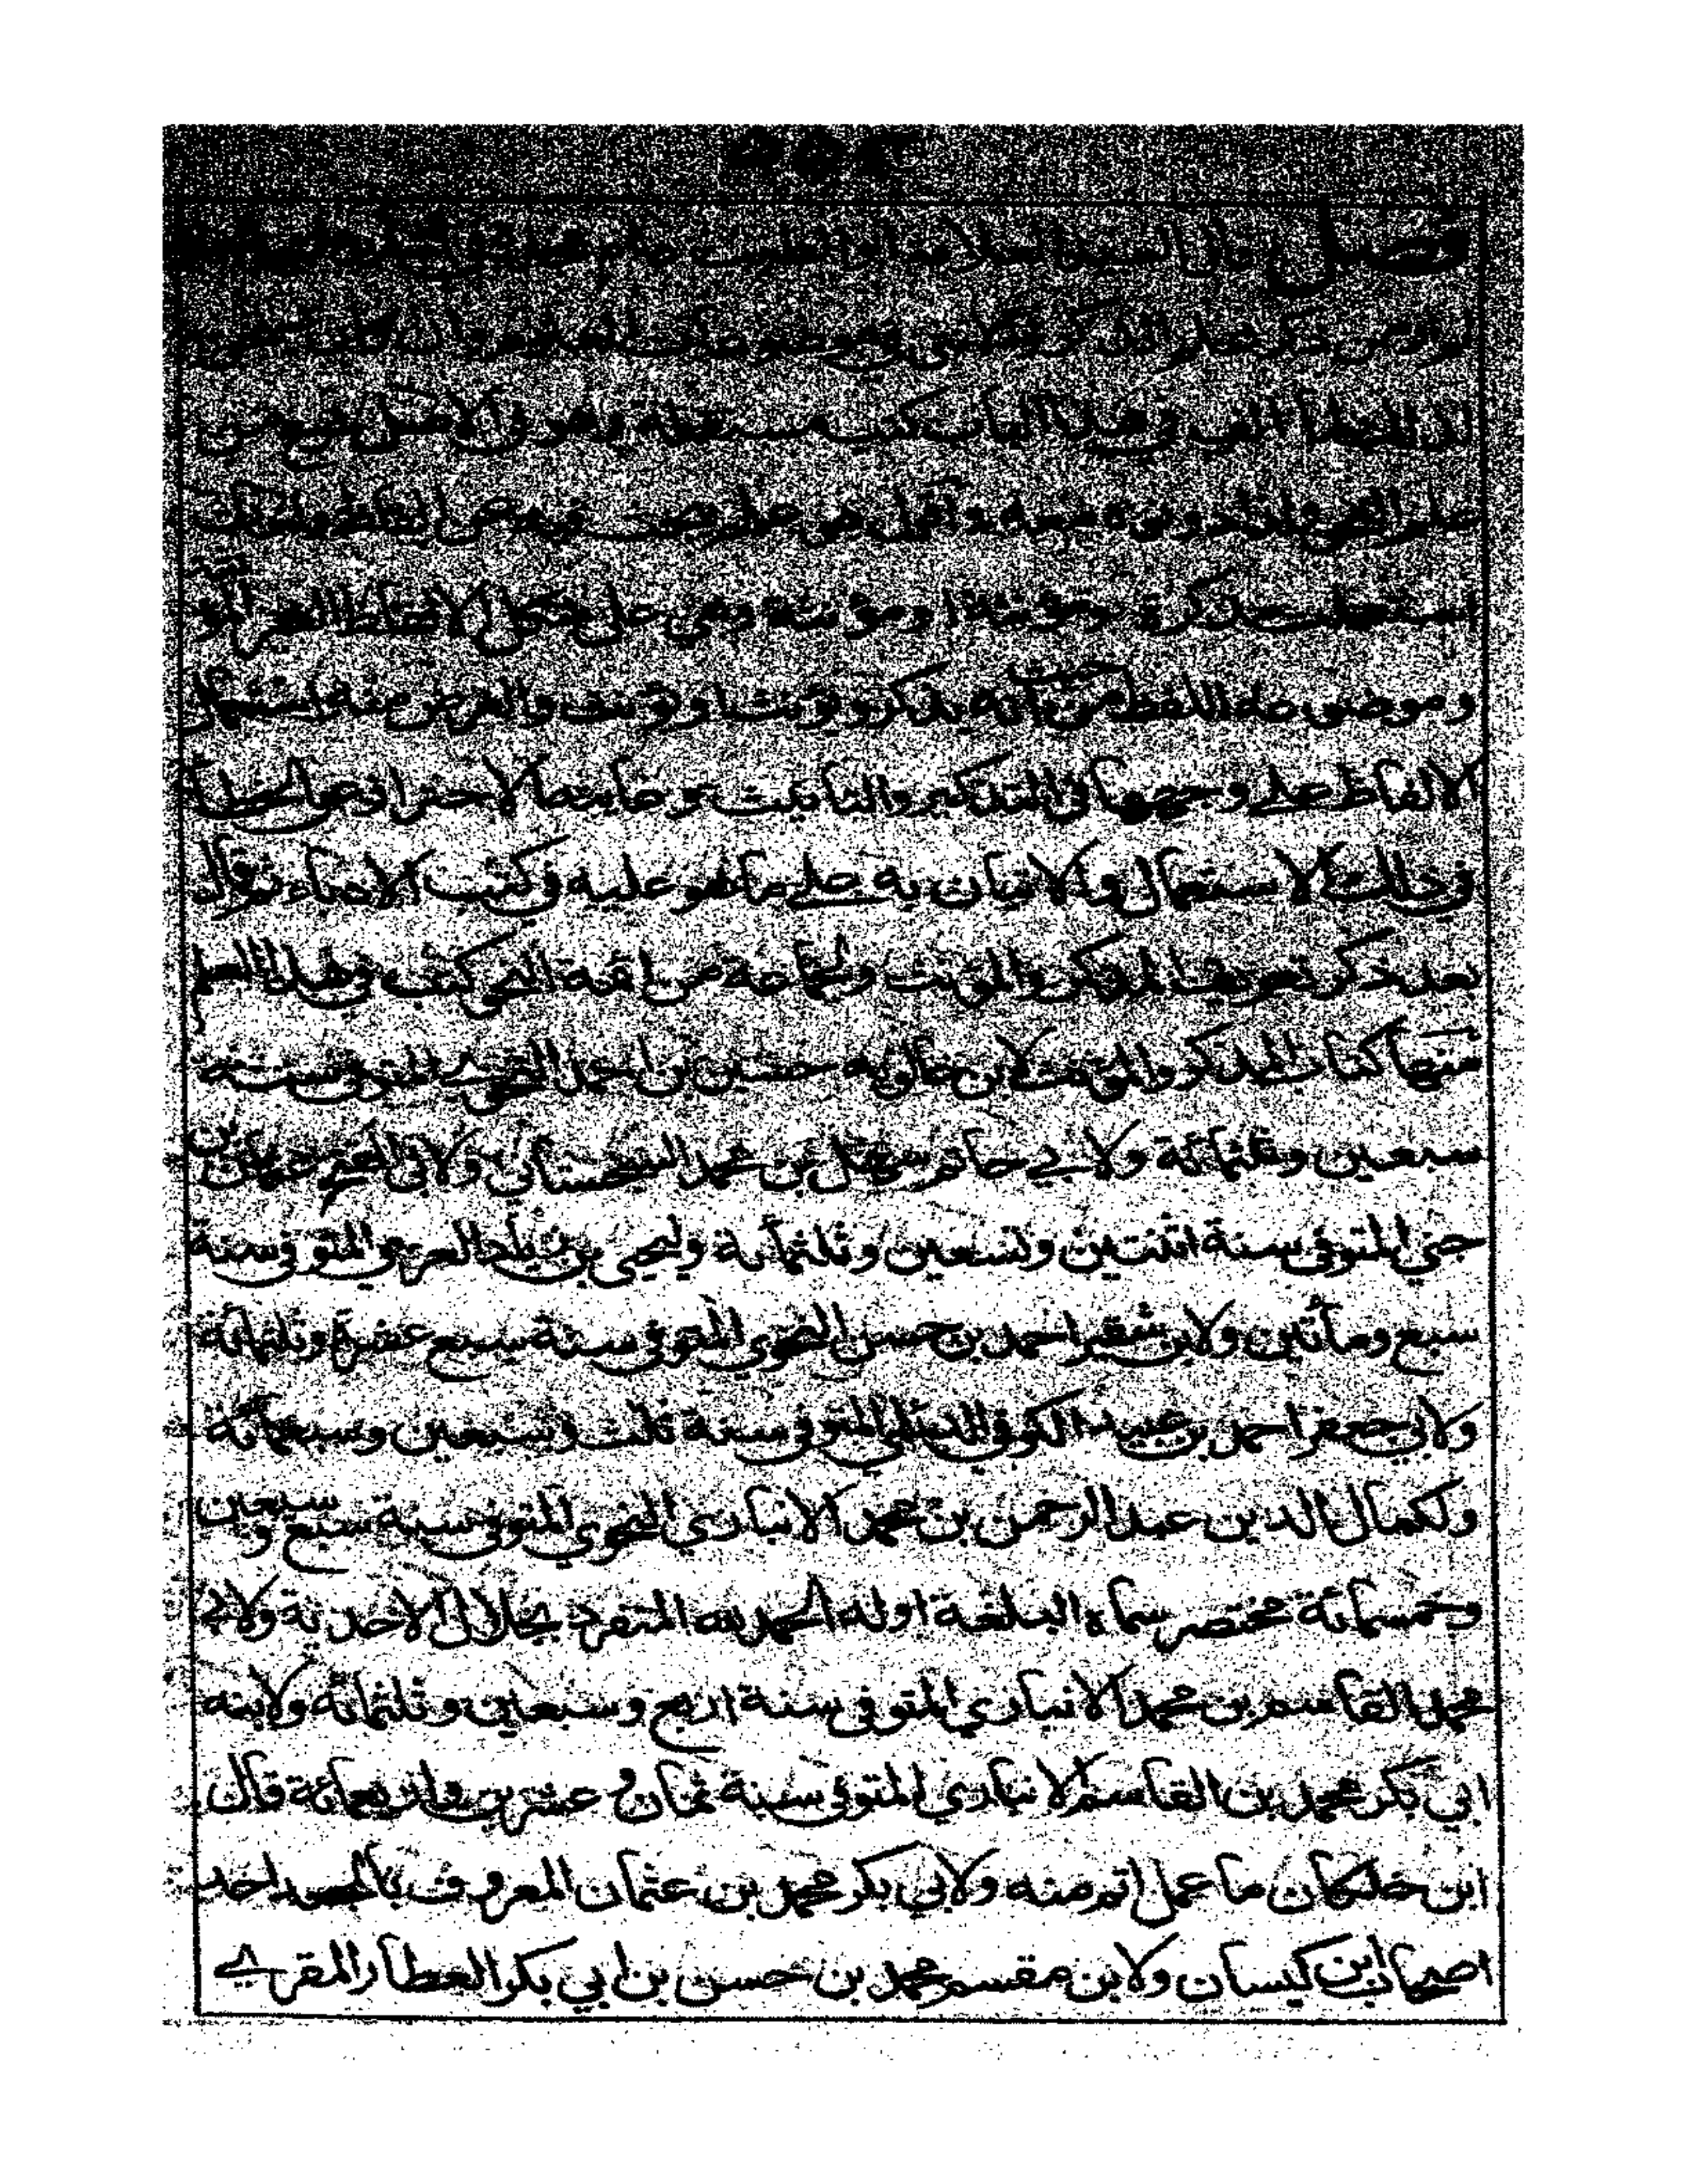 فصل قال السيد العلامة ابو الطيب
لم ار من ذكر علم
في هذا الباب كتب مستقلة وهو في الاصل فرع من
علم النحو
استعملت مذكرة مؤنثة او مؤنثة وهي على شكل الالفاظ الغير المؤنثة
وموضوعه اللفظ من حيث انه يذكر ويؤنث او يؤنث والغرض منه استعمال
الالفاظ على وجهها في التذكير والتأنيث وغايته الاحتراز عن الخطأ
في ذلك الاستعمال والاتيان به على ما هو عليه في كتب الادباء ثم قال
بعد ذكر تعريف المذكر والمؤنث ولجماعة من ائمة النحو كتب في هذا العلم
منها كتاب المذكر والمؤنث لابن خالويه حسين بن احمد النحوي المتوفى سنة
سبعين وثلثمائة ولابي حاتم سهل بن محمد السجستاني ولابي الفتح عثمان بن
جني المتوفى سنة اثنتين وتسعين وثلثمأية وليحيى بن زياد الفراء المتوفى سنة
سبع ومأتين ولابن شقير احمد بن حسن النحوي المتوفى سنة سبع عشرة وثلثمائة
ولابي جعفر احمد بن عبيد الكوفي الديلمي المتوفى سنة ثلث وسبعين وسبعمائة
ولكمال الدين عبد الرحمن بن محمد الانباري النحوي المتوفى سنة سبع وسبعين
وخمسمائة مختصر سماه البلغة اوله الحمد لله المتفرد بجلال الاحدية ولابي
محمد القاسم بن محمد الانباري المتوفى سنة اربع وسبعين وثلثمائة ولابنه
ابي بكر محمد بن القاسم الانباري المتوفى سنة ثمان وعشرين واربعمائة قال
ابن خلكان ما عمل اتم منه ولابي بكر محمد بن عثمان المعروف بالجعد احد
اصحاب ابن كيسان ولابن مقسم محمد بن حسن بن ابي بكر العطار المقرے